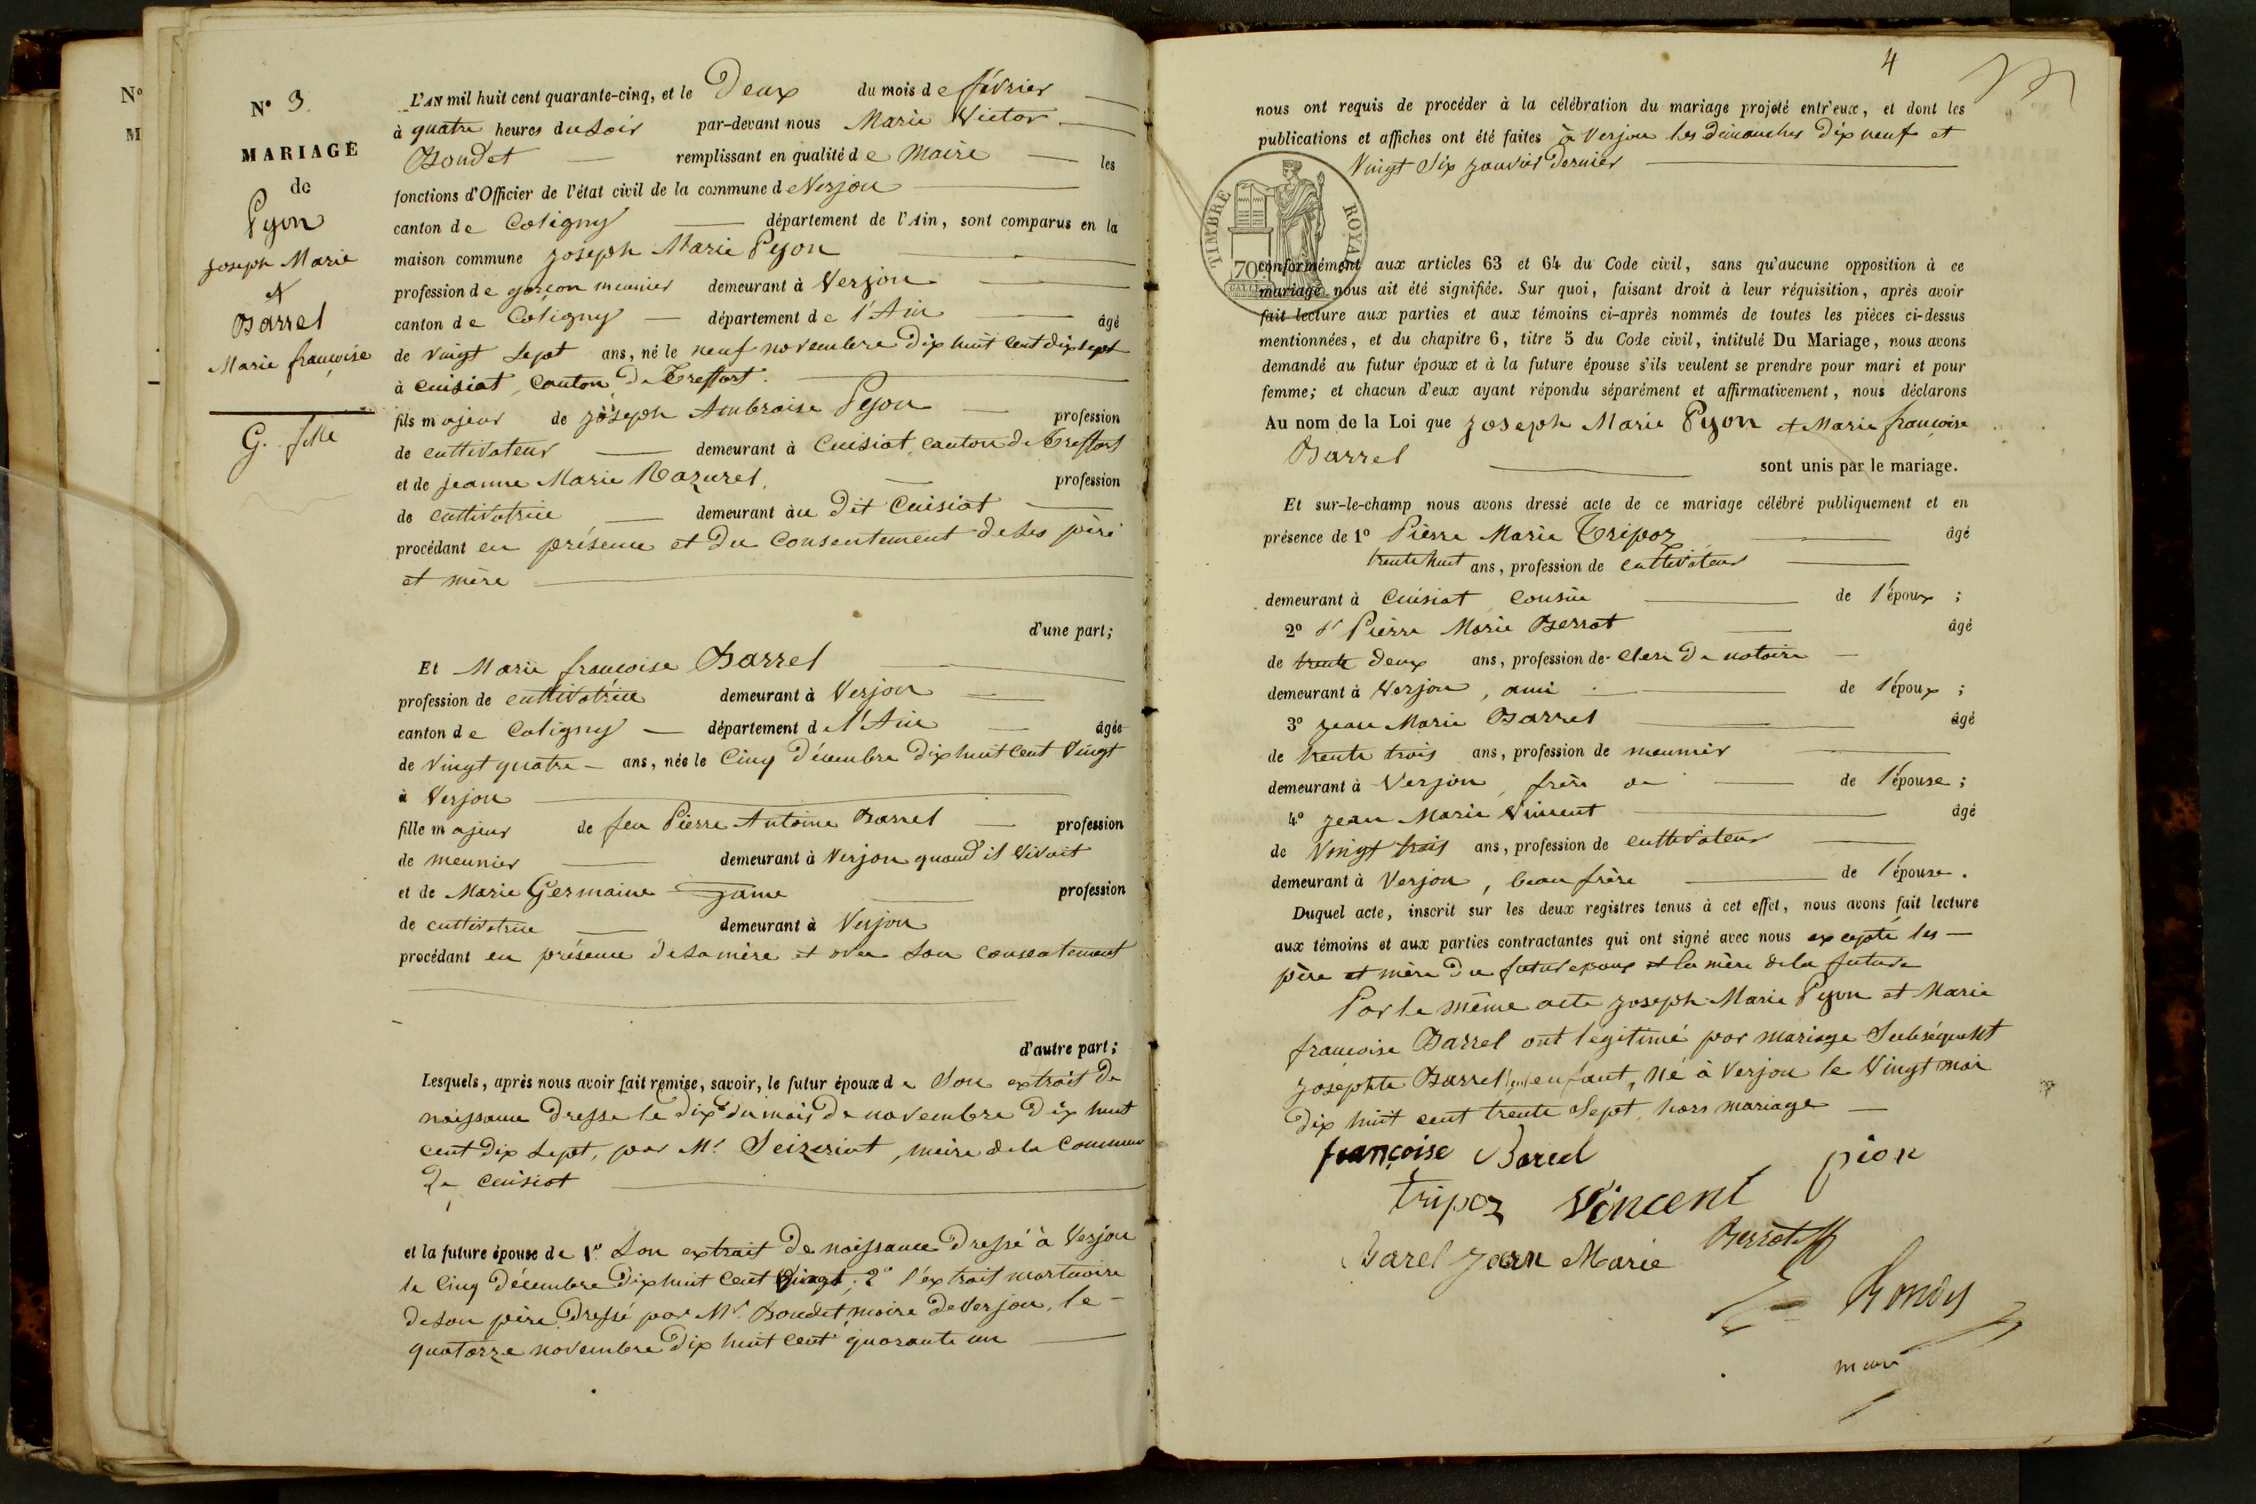 N°
M
N° 3
MARIAGE
de
Pyon
Joseph Marie
et
Barrel
Marie françoise
G. fille
L'AN mil huit cent quarante-cinq, et le Deux du mois de février
à quatre heures du soir par-devant nous Marie Victor
Bondet remplissant en qualité de Maire les
fonctions d'Officier de l'état civil de la commune de Verjon
canton de Coligny département de l'Ain, sont comparus en la
maison commune Joseph Marie Pyon
profession de garçon meunier demeurant à Verjon
canton de Coligny département de l'Ain âgé
de vingt sept ans, né le neuf novembre dix huit cent dix sept
à Cuisiat, canton de Treffort.
fils majeur de joseph Ambroise Pyon profession
de cultivateur demeurant à Cuisiat, canton de Treffort
et de jeanne Marie Razurel, profession
de cultivatrice demeurant au dit Cuisiat
procédant en présence et du consentement de ses père
et mère
d'une part;
Et Marie françoise Barrel
profession de cultivatrice demeurant à Verjon
canton de Coligny département de l'Ain âgée
de vingt quatre ans, née le Cinq Décembre dix huit cent vingt
à Verjon
fille majeur de feu Pierre Antoine Barrel profession
de meunier demeurant à Verjon quand il vivait
et de Marie Germaine Jame profession
de cultivatrice demeurant à Verjon
procédant en présence de sa mère et avec son consentement
d'autre part;
Lesquels, après nous avoir fait remise, savoir, le futur époux de son extrait de
naissance dressé le dix du mois de novembre dix huit
cent dix sept, par Mr. Seizeriat, maire de la Commune
de Cuisiat
et la future épouse de 1° son extrait de naissance dressé à Verjon
le cinq décembre dix huit cent vingt; 2° l'extrait mortuaire
de son père dressé par Mr Bondet, maire de Verjon, le
quatorze novembre dix huit cent quarante un
4
nous ont requis de procéder à la célébration du mariage projeté entr'eux, et dont les
publications et affiches ont été faites à Verjon les dimanches dix neuf et
vingt six janvier dernier
TIMBRE ROYAL
70c
conformément aux articles 63 et 64 du Code civil, sans qu'aucune opposition à ce
mariage nous ait été signifiée. Sur quoi, faisant droit à leur réquisition, après avoir
fait lecture aux parties et aux témoins ci-après nommés de toutes les pièces ci-dessus
mentionnées, et du chapitre 6, titre 5 du Code civil, intitulé Du Mariage, nous avons
demandé au futur époux et à la future épouse s'ils veulent se prendre pour mari et pour
femme; et chacun d'eux ayant répondu séparément et affirmativement, nous déclarons
Au nom de la Loi que joseph Marie Pyon et Marie françoise
Barrel sont unis par le mariage.
Et sur-le-champ nous avons dressé acte de ce mariage célébré publiquement et en
présence de 1° Pierre Marie Tripoz âgé
trente huit ans, profession de cultivateur
demeurant à Cuisiat cousin de l'époux;
2° Pierre Marie Berrot âgé
de trente deux ans, profession de clerc de notaire
demeurant à Verjon, ami de l'époux;
3° jean Marie Barrel âgé
de trente trois ans, profession de meunier
demeurant à Verjon, frère de l'épouse;
4° jean Marie Vincent âgé
de vingt trois ans, profession de cultivateur
demeurant à Verjon, beau frère de l'épouse.
Duquel acte, inscrit sur les deux registres tenus à cet effet, nous avons fait lecture
aux témoins et aux parties contractantes qui ont signé avec nous excepté les
père et mère du futur époux et la mère de la future
Par le même acte joseph Marie Pyon et Marie
françoise Barrel ont légitimé par mariage subséquent
josephte Barrel enfant, né à Verjon le vingt mai
dix huit cent trente sept, hors mariage
françoise Barrel pion
tripoz Vincent
Barel Jean Marie Berrot
Bondet
maire